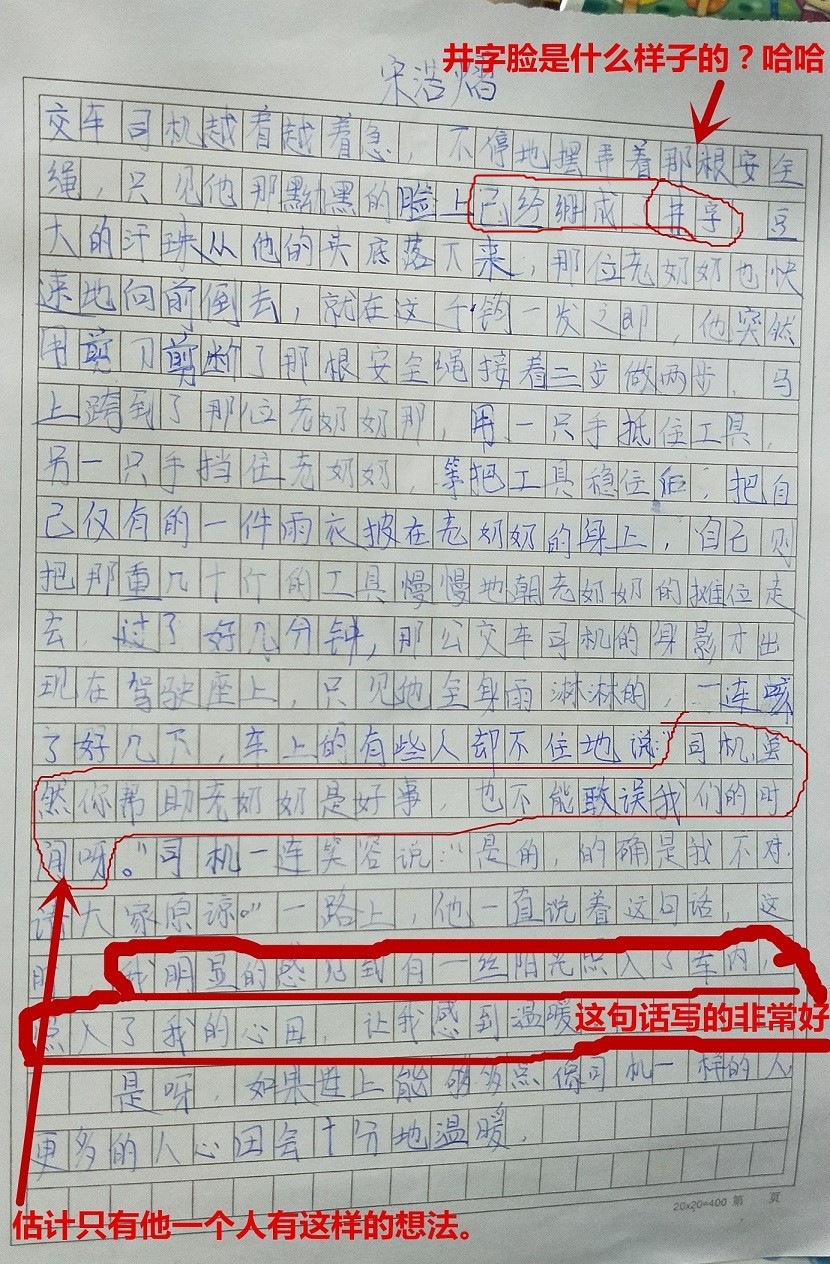 井字脸是什么样子的？哈哈
宋浩熠
交车司机越看越着急，不停地摆弄着那根安全
绳，只见他那黝黑的脸上已经绷成井字，豆
大的汗珠从他的头底落下来，那位老奶奶也快
速地向前倒去，就在这千钧一发之即，他突然
用剪刀剪断了那根安全绳接着三步做两步，马
上跨到了那位老奶奶那，用一只手抵住工具，
另一只手挡住老奶奶，等把工具稳住后，把自
己仅有的一件雨衣披在老奶奶的身上，自己则
把那重几十斤的工具慢慢地朝老奶奶的摊位走
去，过了好几分钟，那公交车司机的身影才出
现在驾驶座上，只见他全身雨淋淋的，一连咳
了好几下，车上的有些人却不住地说：“司机，虽
然你帮助老奶奶是好事，也不能敢误我们的时
间呀。”司机一连笑容说：“是的，的确是我不对，
请大家原谅。”一路上，他一直说着这句话，这
时，我明显的感觉到有一丝阳光照入了车内，
照入了我的心田，让我感到温暖
这句话写的非常好
是呀，如果世上能够多点像司机一样的人
更多的人心田会十分地温暖．
20x20=400 第 页
估计只有他一个人有这样的想法。